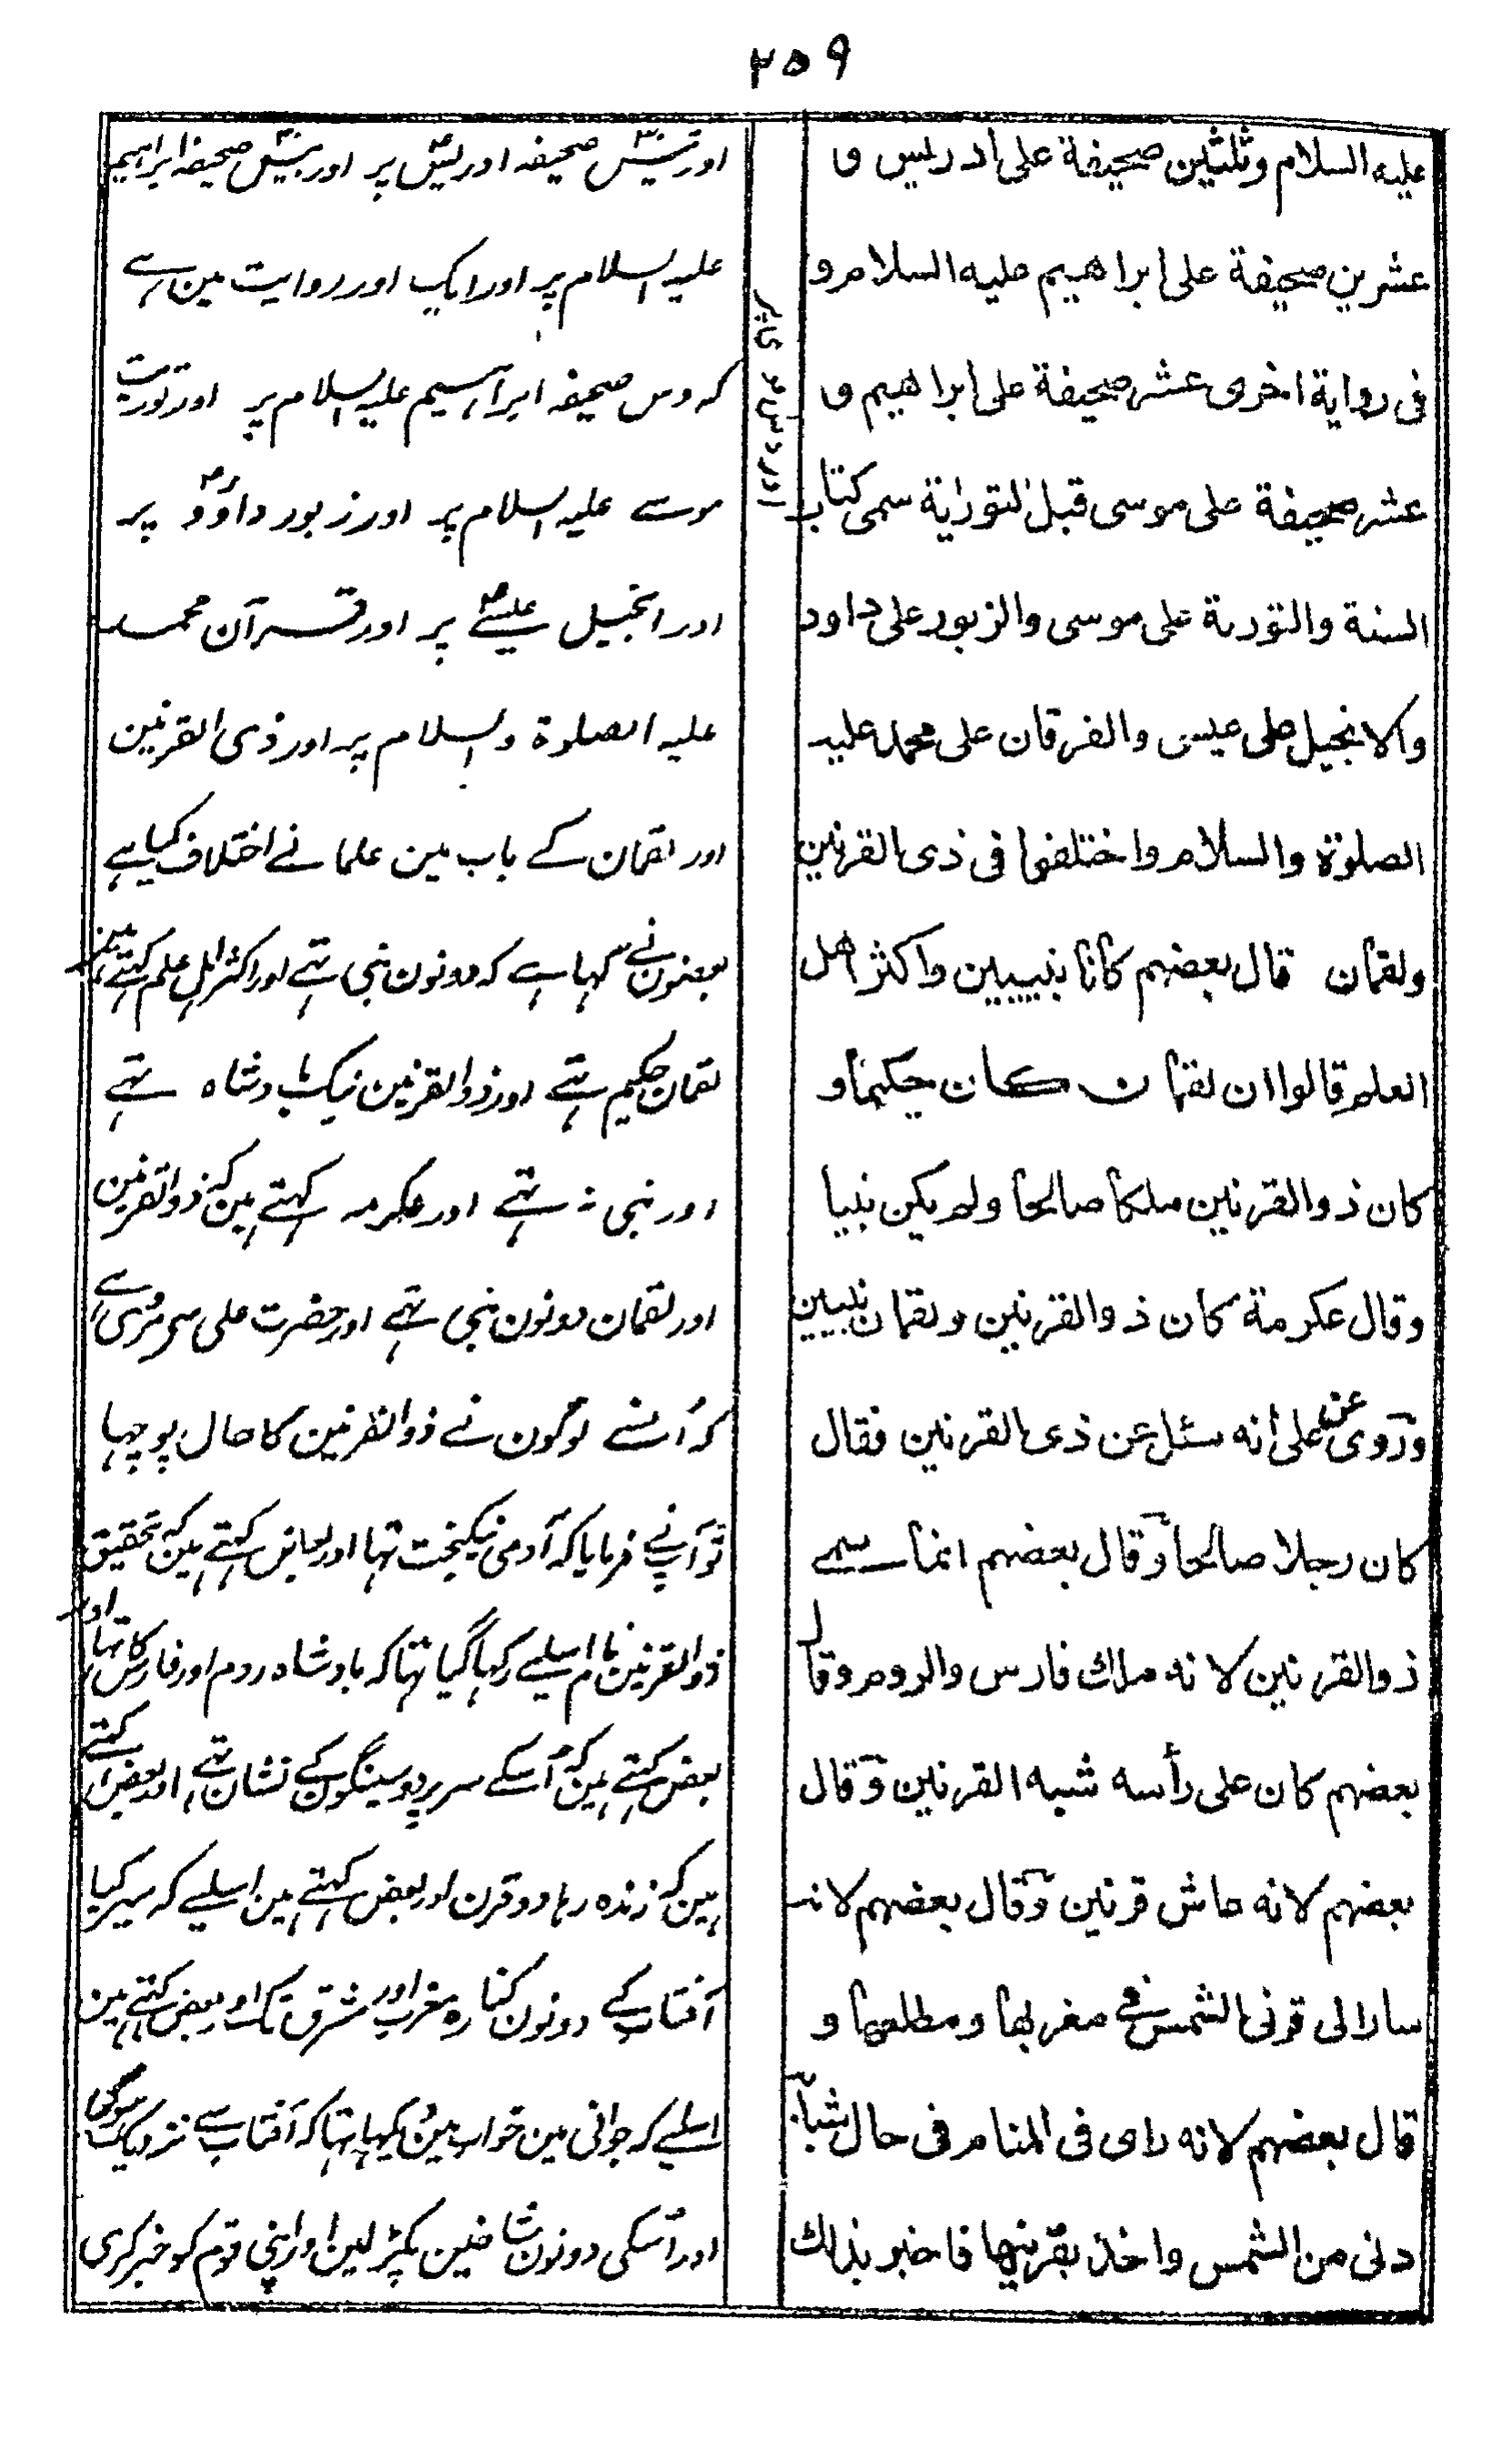 ۲۵۹
عليه السلام وثلثين صحيفة على ادريس و
عشرين صحيفة على ابراهيم عليه السلام و
فى رواية اخرى عشر صحيفة على ابراهيم و
عشر صحيفة على موسى قبل التوراية سمى كتاب
السنة والتورىة على موسى والزبور على داود
والانجيل على عيسى والفرقان على محمد عليه
الصلوٰة والسلام واختلفوا فى ذى القرنين
ولقمان قال بعضهم كانا نبيبين واكثر اهل
العلم قالوا ان لقمان كان حكيما و
كان ذوالقرنين ملكا صالحا ولم يكن نبيا
وقال عكرمة كان ذوالقرنين ولقمان نبيين
وروى عن على انه سئل عن ذى القرنين فقال
كان رجلا صالحا وقال بعضهم انما سمى
ذوالقرنين لانه ملك فارس والروم وقال
بعضهم كان على رأسه شبه القرنين وقال
بعضهم لانه عاش قرنين وقال بعضهم لانه
سارالى قرنى الشمس فى مغربها ومطلعها و
قال بعضهم لانه راى فى المنام فى حال شبابه
دنى من الشمس واخذ بقرنيها فاخبر بذلك
اور دس
اور تیس صحیفہ ادریس پر اور بیس صحیفہ ابراہیم
علیہ السلام پر اور ایک اور روایت مین ہے
کہ دس صحیفہ ابراہیم علیہ السلام پر اور توریت
موسے علیہ السلام پر اور زبور داوود پر
اور انجیل عیسے پر اور قرآن محمد
علیہ الصلوۃ والسلام پر اور ذی القرنین
اور لقمان کے باب مین علما نے اختلاف کیا ہے
بعضون نے کہا ہے کہ دونون نبی تہے اور اکثر اہل علم کہتے ہین
لقمان حکیم تہے اور ذوالقرنین نیک بادشاہ تہے
اور نبی نہ تہے اور عکرمہ کہتے ہین کہ ذوالقرنین
اور لقمان دونون نبی تہے اور حضرت علی سے مروی ہے
کہ اُنسے لوگون نے ذوالقرنین کا حال پوچہا
تو آپ نے فرمایا کہ آدمی نیکبخت تہا اور بعض کہتے ہین کہ تحقیق
ذوالقرنین نام اسلیے رکہا گیا تہا کہ بادشاہ روم اور فارس کا تہا اور
بعض کہتے ہین کہ اُسکے سر پر دو سینگون کے نشان تہے اور بعض کہتے
ہین کہ زندہ رہا دو قرن اور بعض کہتے ہین اسلیے کہ سیر کیا
آفتاب کے دونون کنارہ مغرب اور مشرق تک اور بعض کہتے ہین
اسلیے کہ جوانی مین خواب مین دیکہا تہا کہ آفتاب سے نزدیک ہوگئی
اور اُسکی دونون شاخین پکڑ لین اور اپنی قوم کو خبر کری